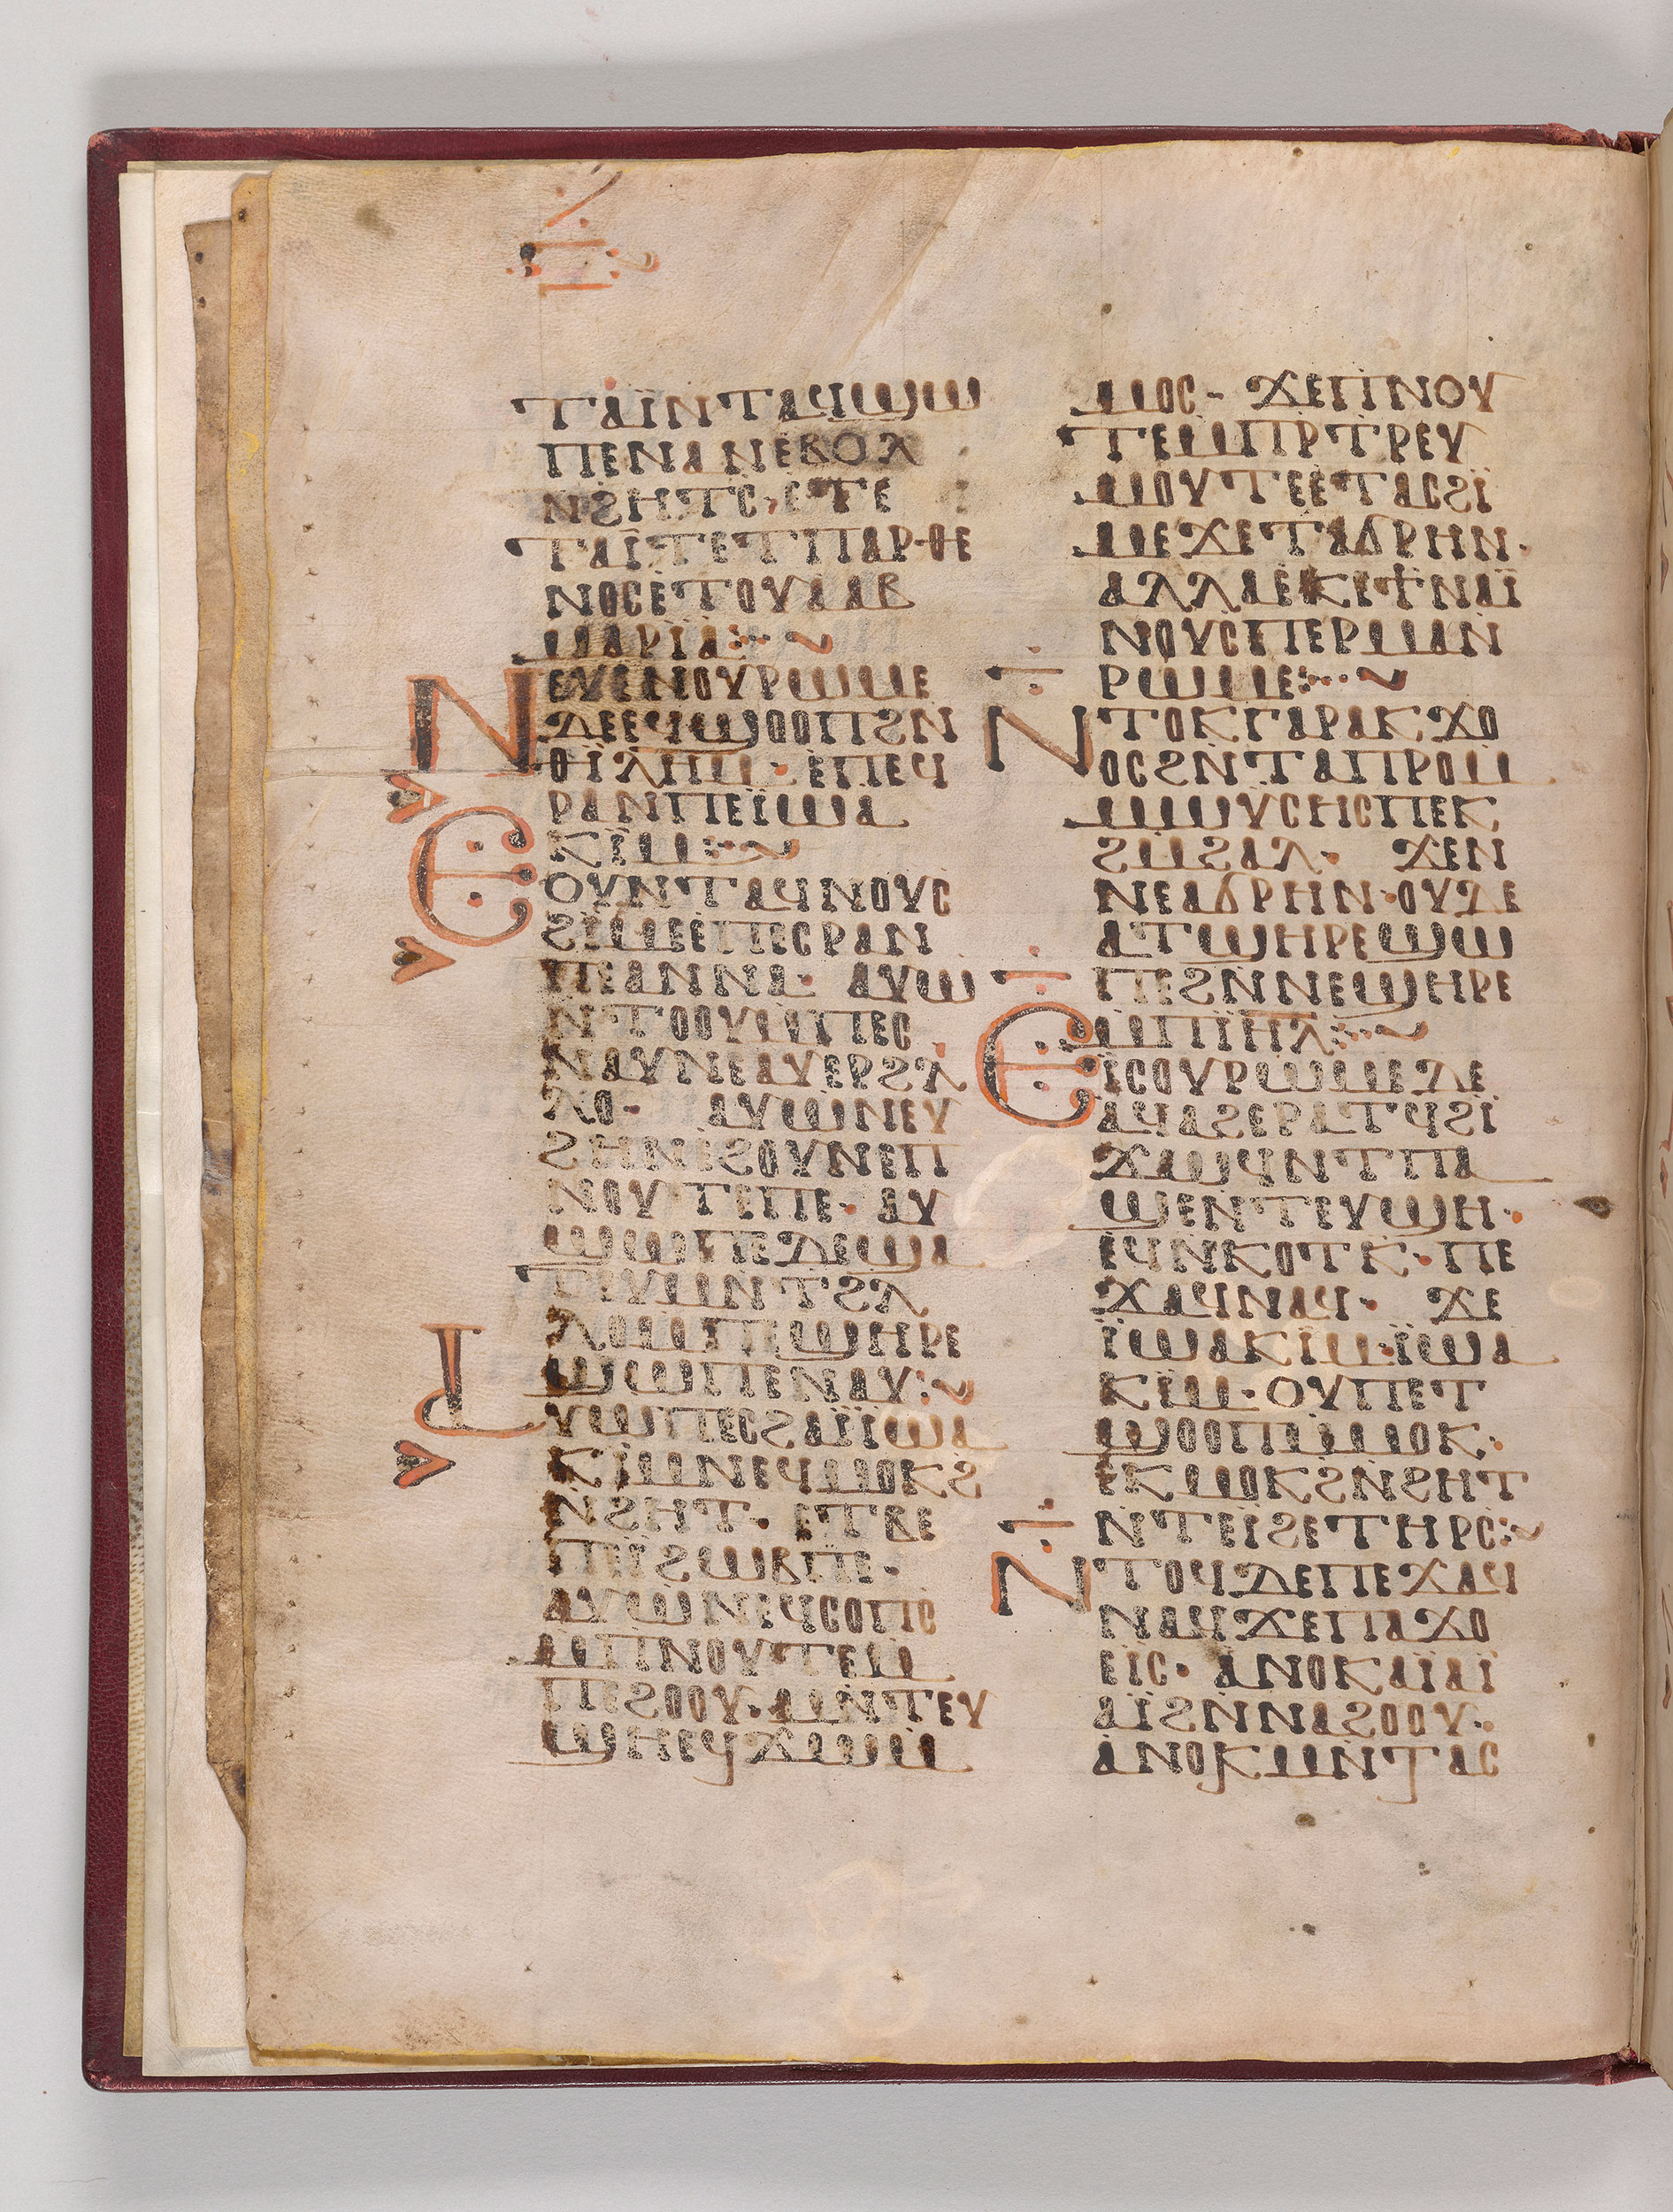 ⲧⲁⲓ̈ⲛⲧⲁϥϣⲱ
ⲡⲉⲛⲁⲛⲉⲃⲟⲗ
ⲛϩⲏⲧⲥ·ⲉⲧⲉ
ⲧⲁⲓ̈ⲧⲉⲧⲡⲁⲣⲑⲉ
ⲛⲟⲥⲉⲧⲟⲩⲁⲁⲃ
ⲙⲁⲣⲓ̈ⲁ:
ⲛⲉⲩⲉⲛⲟⲩⲣⲱⲙⲉ
ⲇⲉⲉϥϣⲟⲟⲡϩⲛ
ⲑⲓ̈ⲗⲏⲙ·ⲉⲡⲉϥ
ⲣⲁⲛⲡⲉⲓ̈ⲱⲁ
ⲕⲓ̈ⲙ:
ⲉⲟⲩⲛⲧⲁϥⲛⲟⲩⲥ
ϩⲓ̈ⲙⲉⲉⲡⲉⲥⲣⲁⲛ
ⲡⲉⲁⲛⲛⲁ· ⲁⲩⲱ
ⲛⲧⲟⲟⲩⲙⲡⲉⲥ
ⲛⲁⲩⲛⲉⲁⲩⲉⲣϩⲗ
ⲗⲟ· ⲁⲩⲱⲛⲉⲩ
ϩⲏⲛⲉϩⲟⲩⲛⲉⲡ
ⲛⲟⲩⲧⲉⲡⲉ· ⲁⲩ
ϣⲱⲡⲉⲇⲉϣⲁ
ⲧⲉⲩⲙⲛⲧϩⲗ
ⲗⲟⲙⲡⲉϣⲏⲣⲉ
ϣⲱⲡⲉⲛⲁⲩ:
ⲁⲩⲱⲡⲉⲥϩⲁⲓ̈ⲓ̈ⲱⲁ
ⲕⲓ̈ⲙⲛⲉϥⲙⲟⲕϩ
ⲛ̇ϩⲏⲧ· ⲉⲧⲃⲉ
ⲡⲉⲓϩⲱⲃⲡⲉ·
ⲁⲩⲱⲛⲉϥⲥⲟⲡⲥ
ⲙⲡⲛⲟⲩⲧⲉⲙ
ⲡⲉϩⲟⲟⲩ·ⲙⲛⲧⲉⲩ
ϣⲏⲉϥϫⲱⲙ
ⲙⲟⲥ- ϫⲉⲡⲛⲟⲩ
ⲧⲉⲙⲡⲣⲧⲣⲉⲩ
ⲙⲟⲩⲧⲉⲉⲧⲁⲥϩⲓ̈
ⲙⲉϫⲉⲧⲁϭⲣⲏⲛ·
ⲁⲗⲗⲁⲉⲕⲉϯⲛⲁⲓ̈
ⲛⲟⲩⲥⲡⲉⲣⲙⲁⲛ
ⲣⲱⲙⲉ:
ⲛⲧⲟⲕⲅⲁⲣⲁⲕϫⲟ
ⲟⲥϩⲛⲧⲁⲡⲣⲟⲙ
ⲙⲱⲩⲥⲏⲥⲡⲉⲕ
ϩⲙϩⲁⲗ· ϫⲉⲛ
ⲛⲉⲁϭⲣⲏⲛ·ⲟⲩⲇⲉ
ⲁⲧϣⲏⲣⲉϣⲱ
ⲡⲉϩⲛⲛⲉϣⲏⲣⲉ
ⲙⲡⲓ̈ⲏ̅ⲗ̅:
ⲉⲓⲥⲟⲩⲣⲱⲙⲉⲇⲉ
ⲁϥⲁϩⲉⲣⲁⲧϥϩⲓ̈
ϫⲱϥⲛⲧⲡⲁ
ϣⲉⲛⲧⲉⲩϣⲏ·
ⲉϥⲛⲕⲟⲧⲕ·ⲡⲉ
ϫⲁϥⲛⲁϥ· ϫⲉ
ⲓ̈ⲱⲁⲕⲓⲙ·ⲓ̈ⲱⲁ
ⲕⲓⲙ·ⲟⲩⲡⲉⲧ
ϣⲟⲟⲡⲙⲙⲟⲕ·
ⲉⲕⲙⲟⲕϩⲛ̇ϩⲏⲧ
ⲛ̇ⲧⲉⲓϩⲉⲧⲏⲣⲥ:
ⲛⲧⲟϥⲇⲉⲡⲉϫⲁϥ
ⲛⲁϥϫⲉⲡⲁϫⲟ
ⲉⲓ̈ⲥ· ⲁⲛⲟⲕⲁⲓ̈ⲁⲓ̈
ⲁⲓ̈ϩⲛⲛⲁϩⲟⲟⲩ·
ⲁⲛⲟⲕⲙⲛⲧⲁⲥ